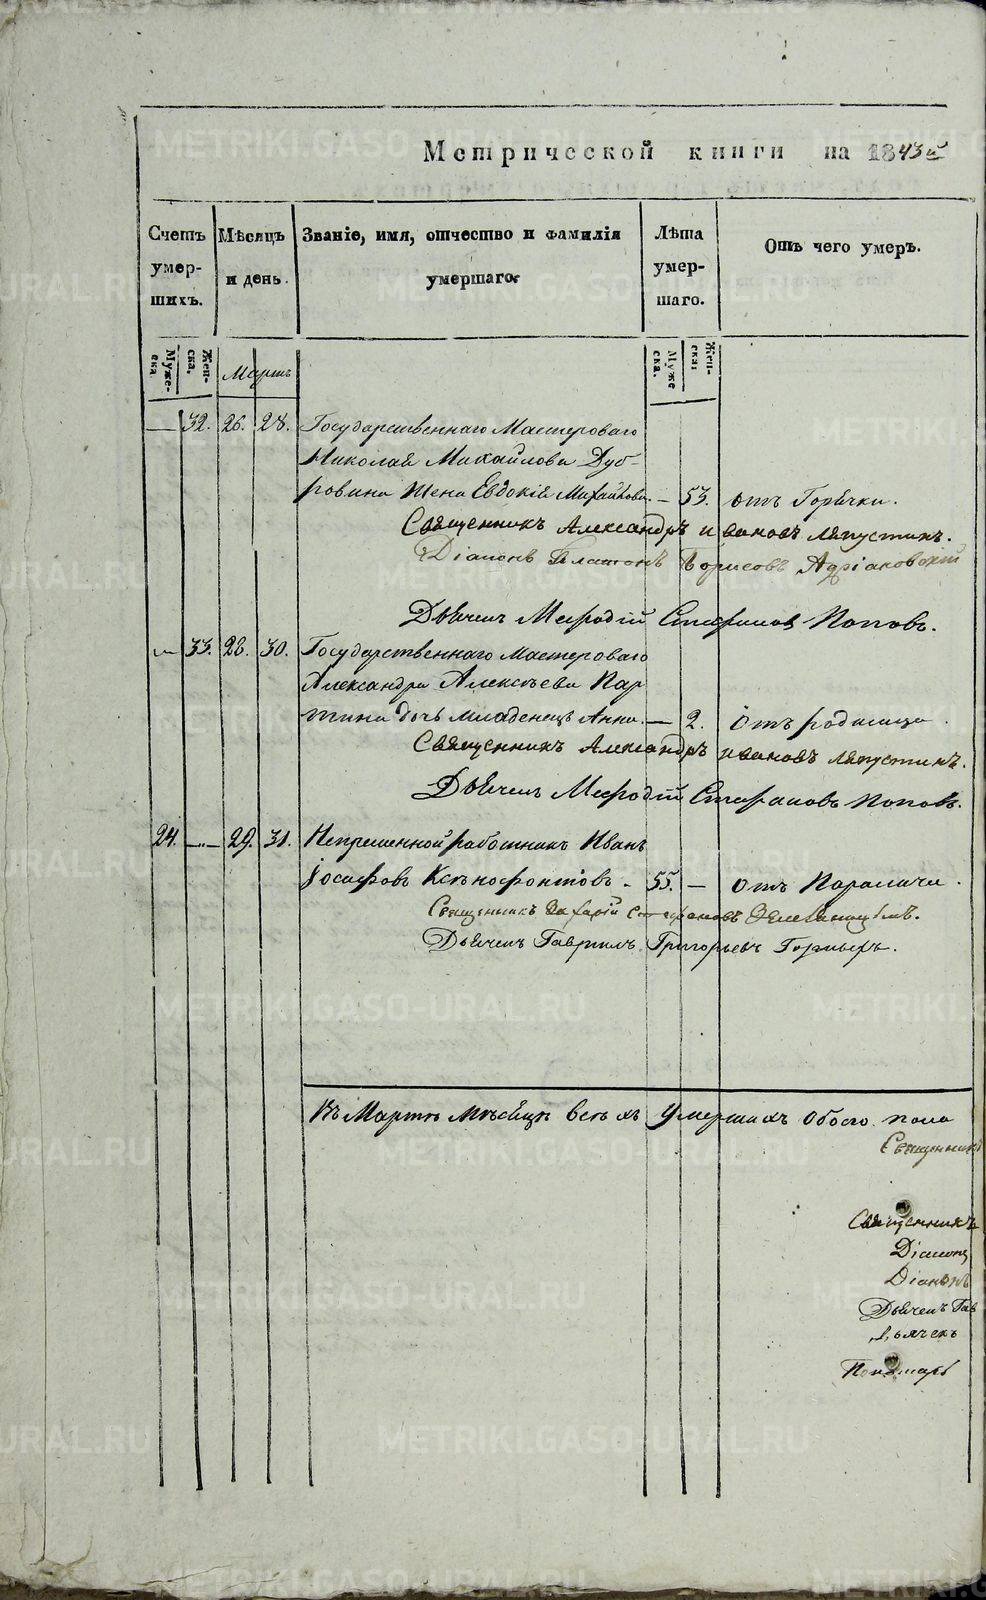 Метрической книги на 1843й
Счетъ умер-шихъ.
Мѣсяцъ и день.
Званіе, имя, отчество и фамилія умершаго.
Лѣта умер-шаго.
Отъ чего умеръ.
Муже-ска
Жен-ска.
Мартъ
Муже ска.
Жен-ска:
— 32. 26. 28. Государственнаго Мастероваго
Николая Михайлова Дуб-
ровина Жена Евдокія Михайлова. — 53. отъ Горячки.
Священникъ Александръ Ивановъ Ляпустинъ.
Діаконъ Платонъ Борисовъ Адріановскій
Дьячекъ Мефодій Стефановъ Поповъ.
— 33. 28. 30. Государственнаго Мастероваго
Александра Алексѣева Пар
шина дочь младенецъ Анна. — 2. отъ родимца
Священникъ Александръ Ивановъ Ляпустинъ.
Дьячекъ Мефодій Стефановъ Поповъ.
24. — 29. 31. Непременной работникъ Иванъ
Іосафовъ Ксенофонтовъ. 55. — отъ Паралича.
Священникъ Захарій Стефановъ
Дьячекъ Гавріилъ Григорьевъ
Въ Мартѣ Мѣсяцѣ всѣхъ Умершихъ обоего пола
Священникъ
Священникъ
Діаконъ
Діаконъ
Дьячекъ Гав
Дьячекъ
Пономарь
METRIKI.GASO-URAL.RU